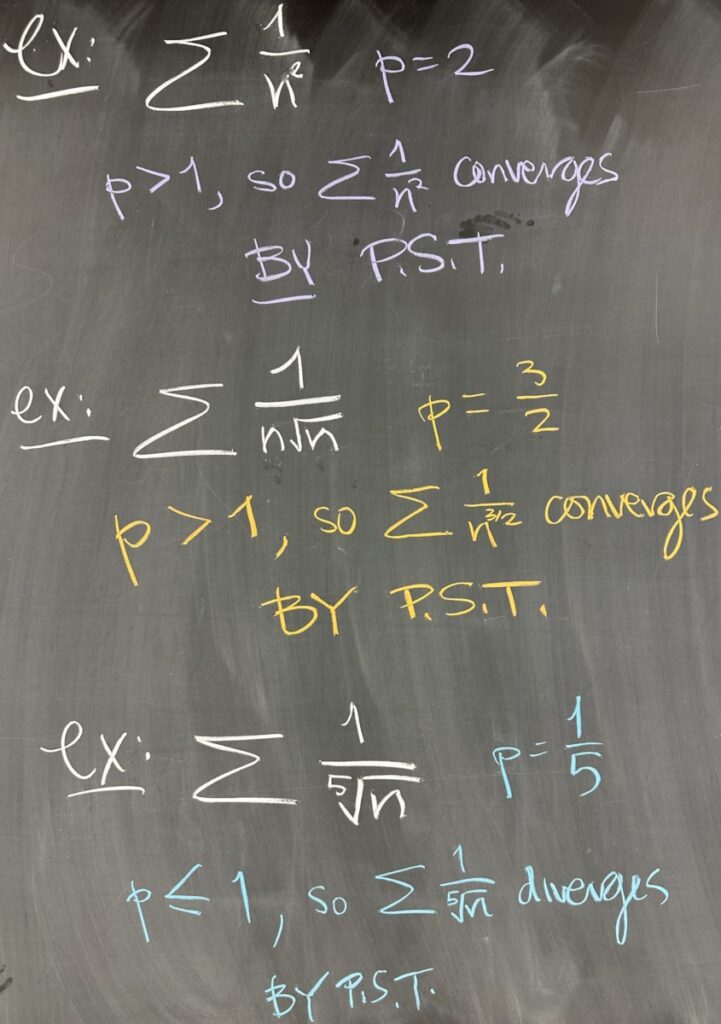 ex: ∑ 1/n² p=2
p>1, so ∑ 1/n² converges
BY P.S.T.
ex: ∑ 1/n√n p = 3/2
p > 1, so ∑ 1/n^3/2 converges
BY P.S.T.
ex: ∑ 1/⁵√n p = 1/5
p ≤ 1, so ∑ 1/⁵√n diverges
BY P.S.T.